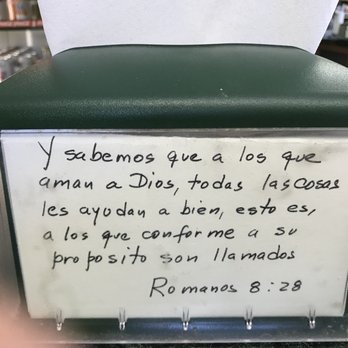 Y sabemos que a los que
aman a Dios, todas las cosas
les ayudan a bien, esto es,
a los que conforme a su
proposito son llamados
Romanos 8:28